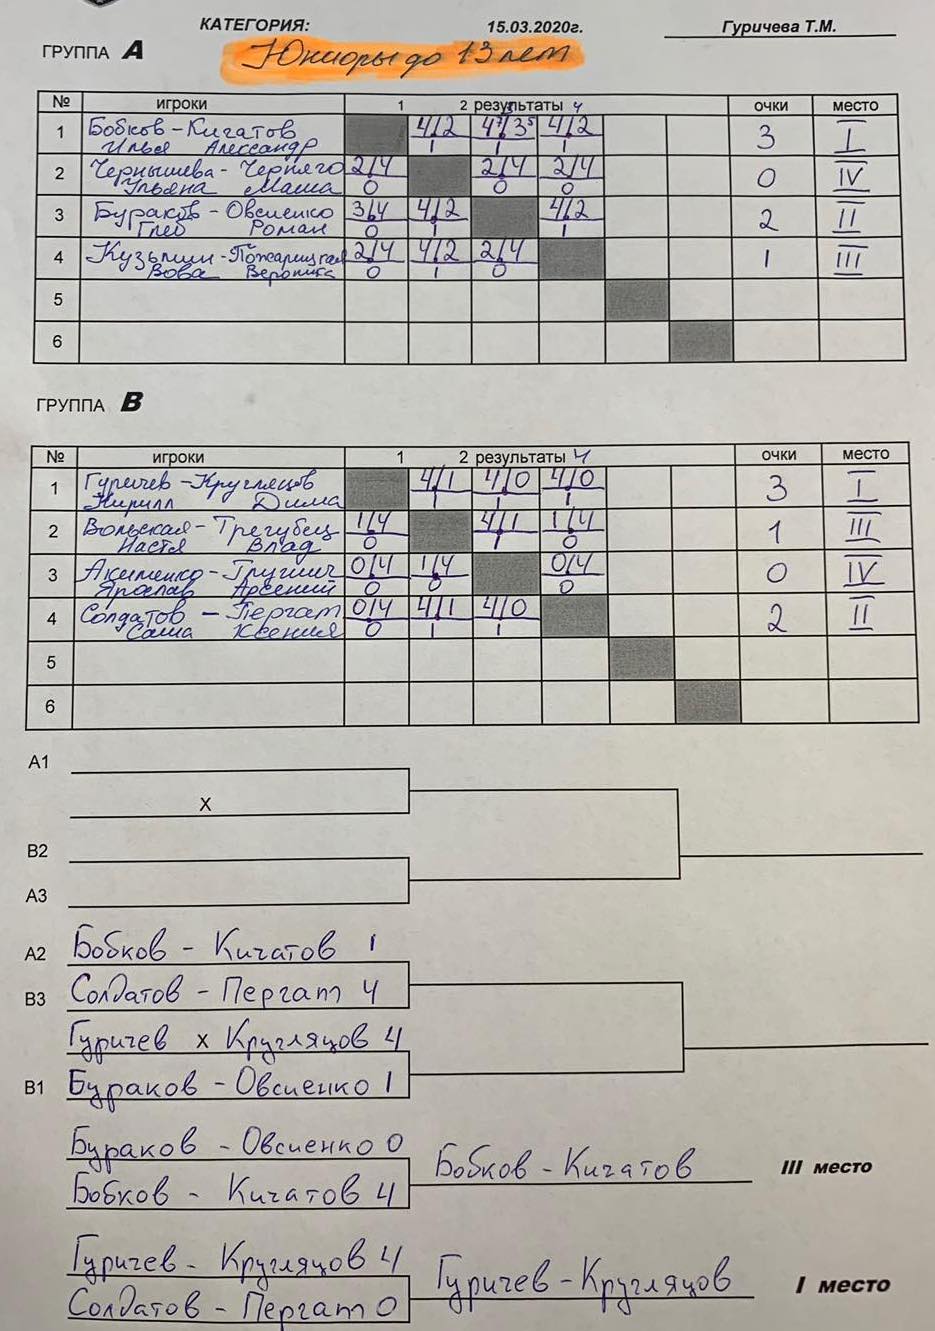 КАТЕГОРИЯ: 15.03.2020г. Гуричева Т.М.
ГРУППА А Юниоры до 13 лет
№ игроки 1 2 результаты 4 очки место
1 Бобков - Кичатов 4/2 4/3 4/2 3 I
Илья Александр 1 1 1
2 Чернышева - Черняго 2/4 2/4 2/4 0 IV
Ульяна Маша 0 0 0
3 Бураков - Овсиенко 3/4 4/2 4/2 2 II
Глеб Роман 0 1 1
4 Кузьмин - Пожарицкая 2/4 4/2 2/4 1 III
Вова Вероника 0 1 0
5
6
ГРУППА В
№ игроки 1 2 результаты 4 очки место
1 Гуричев - Кругляцов 4/1 4/0 4/0 3 I
Кирилл Дима 1 1 1
2 Вольская - Трегубец 1/4 4/1 1/4 1 III
Настя Влад 0 1 0
3 Акименко - 0/4 1/4 0/4 0 IV
Ярослав Арсений 0 0 0
4 Солдатов - Пергат 0/4 4/1 4/0 2 II
Саша Ксения 0 1 1
5
6
А1
X
В2
А3
А2 Бобков - Кичатов 1
В3 Солдатов - Пергат 4
Гуричев х Кругляцов 4
В1 Бураков - Овсиенко 1
Бураков - Овсиенко 0
Бобков - Кичатов III место
Бобков - Кичатов 4
Гуричев - Кругляцов 4
Гуричев - Кругляцов I место
Солдатов - Пергат 0